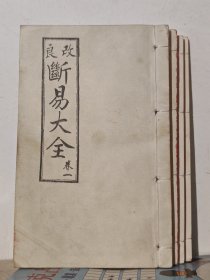 改良
斷易大全
卷一